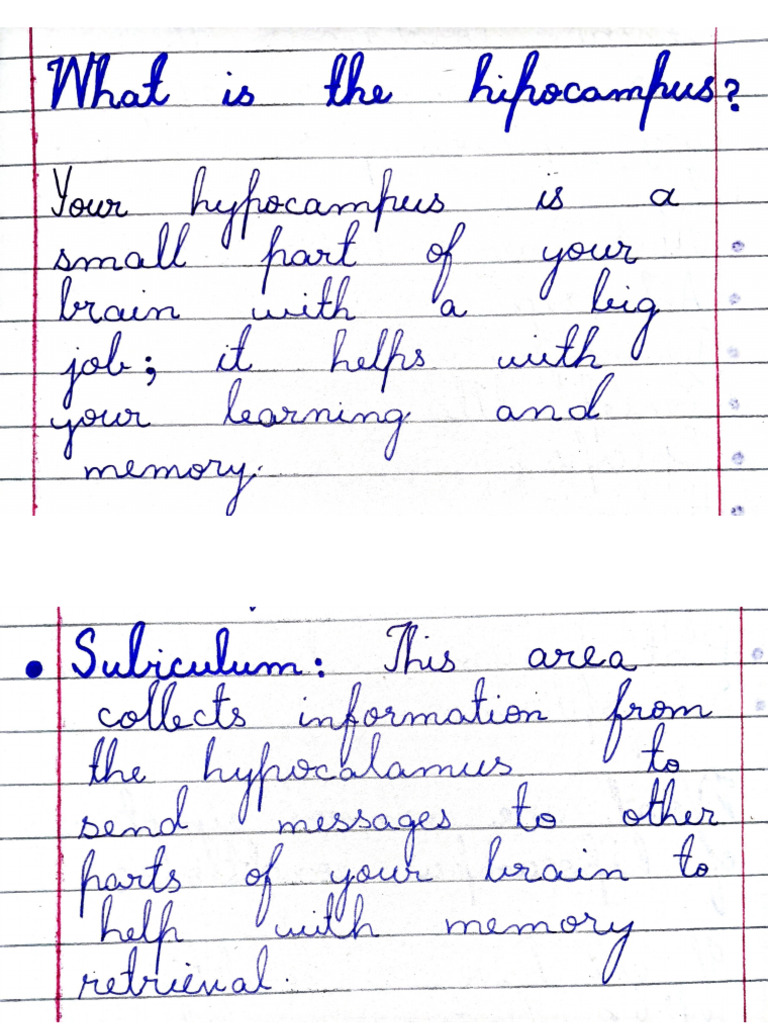 What is the hipocampus?
Your hypocampus is a
small part of your
brain with a big
job; it helps with
your learning and
memory.
• Subiculum: This area
collects information from
the hypocalamus to
send messages to other
parts of your brain to
help with memory
retrieval.